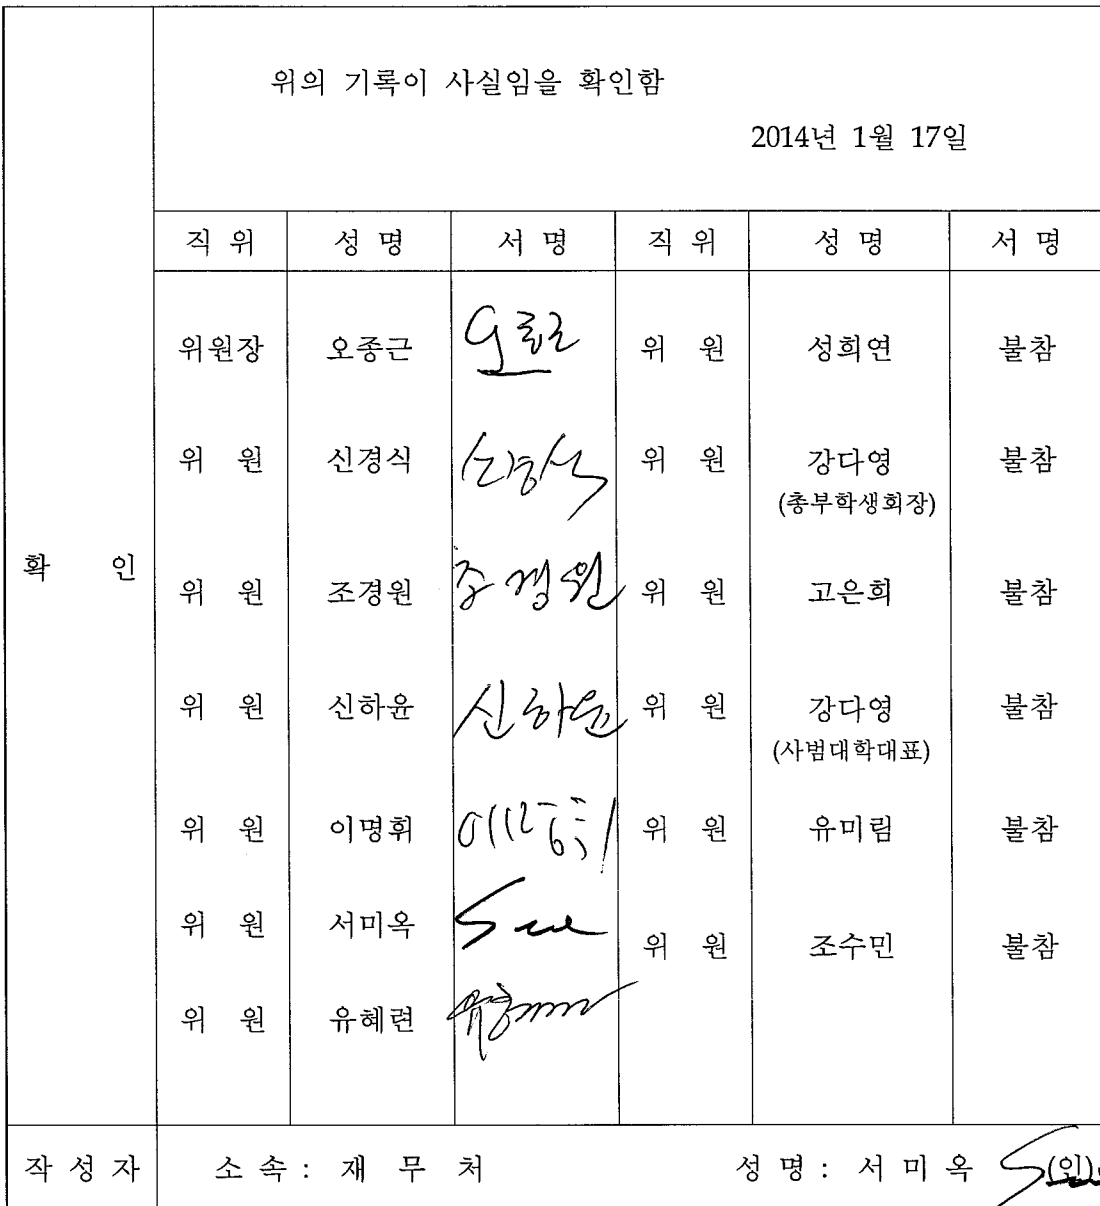 위의 기록이 사실임을 확인함
2014년 1월 17일
직 위 성 명 서 명 직 위 성 명 서 명
위원장 오종근 오종근 위 원 성희연 불참
위 원 신경식 신경식 위 원 강다영 불참
(총부학생회장)
확 인
위 원 조경원 조경원 위 원 고은희 불참
위 원 신하윤 신하윤 위 원 강다영 불참
(사범대학대표)
위 원 이명휘 이명휘 위 원 유미림 불참
위 원 서미옥 위 원 조수민 불참
위 원 유혜련
작 성 자 소 속 : 재 무 처 성 명 : 서 미 옥 (인)